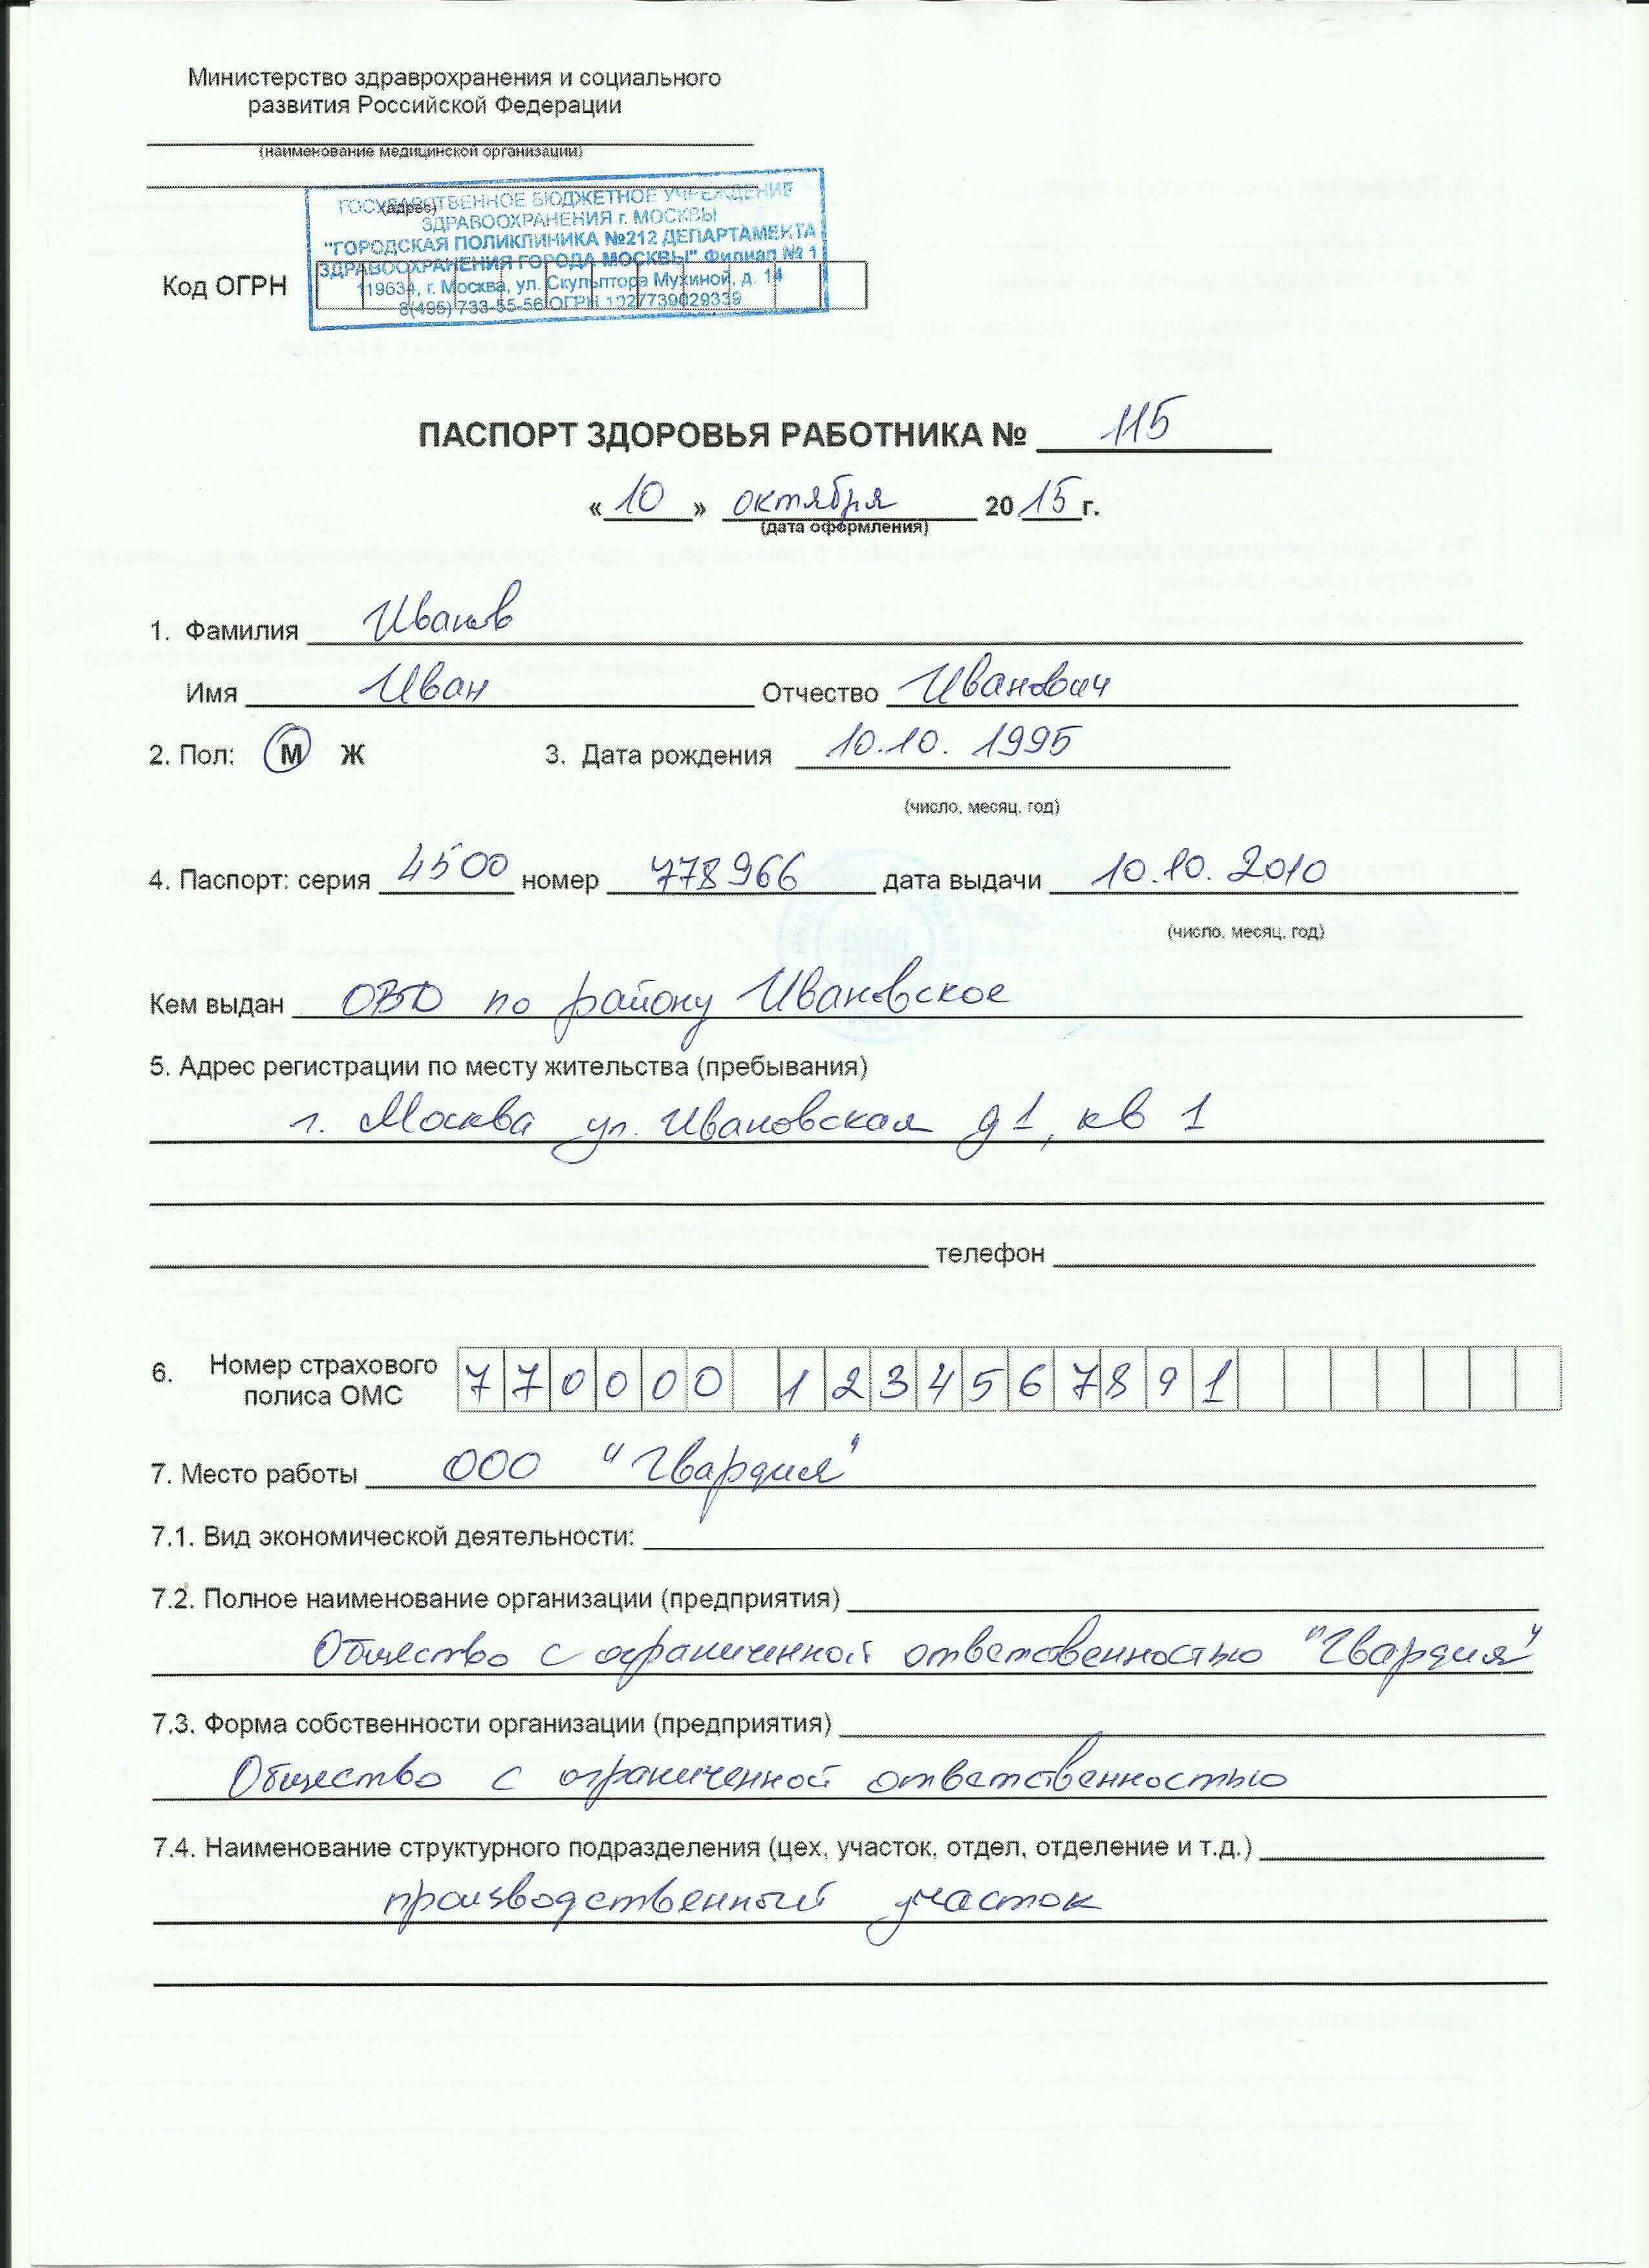 Министерство здраврохранения и социального
развития Российской Федерации
(наименование медицинской организации)
ГОСУДАРСТВЕННОЕ БЮДЖЕТНОЕ УЧРЕЖДЕНИЕ
(адрес)
ЗДРАВООХРАНЕНИЯ г. МОСКВЫ
"ГОРОДСКАЯ ПОЛИКЛИНИКА №212 ДЕПАРТАМЕНТА
ЗДРАВООХРАНЕНИЯ ГОРОДА МОСКВЫ" Филиал № 1
119634, г. Москва, ул. Скульптора Мухиной, д. 14
8(495) 733-55-56 ОГРН 1027739029339
Код ОГРН
ПАСПОРТ ЗДОРОВЬЯ РАБОТНИКА № 115
«10» октября 2015г.
(дата оформления)
1. Фамилия Иванов
Имя Иван Отчество Иванович
2. Пол: М Ж 3. Дата рождения 10.10. 1995
(число, месяц, год)
4. Паспорт: серия 4500 номер 778966 дата выдачи 10.10. 2010
(число, месяц, год)
Кем выдан ОВД по району Ивановское
5. Адрес регистрации по месту жительства (пребывания)
г. Москва ул. Ивановская д1, кв 1
телефон
6. Номер страхового
полиса ОМС 770000 1234567891
7. Место работы ООО "Гвардия"
7.1. Вид экономической деятельности:
7.2. Полное наименование организации (предприятия)
Общество с ограниченной ответственностью "Гвардия"
7.3. Форма собственности организации (предприятия)
Общество с ограниченной ответственностью
7.4. Наименование структурного подразделения (цех, участок, отдел, отделение и т.д.)
производственный участок